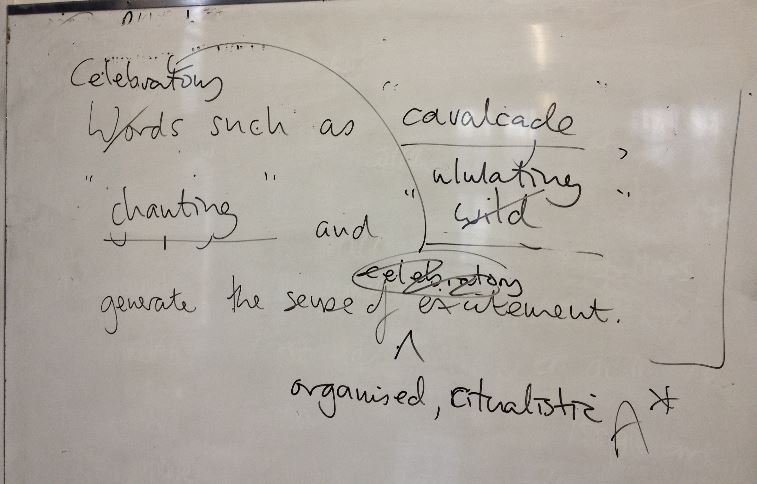 Celebratory
Words such as "cavalcade",
"chanting" and "ululating"
wild
celebratory
generate the sense of excitement.
organised, ritualistic A*